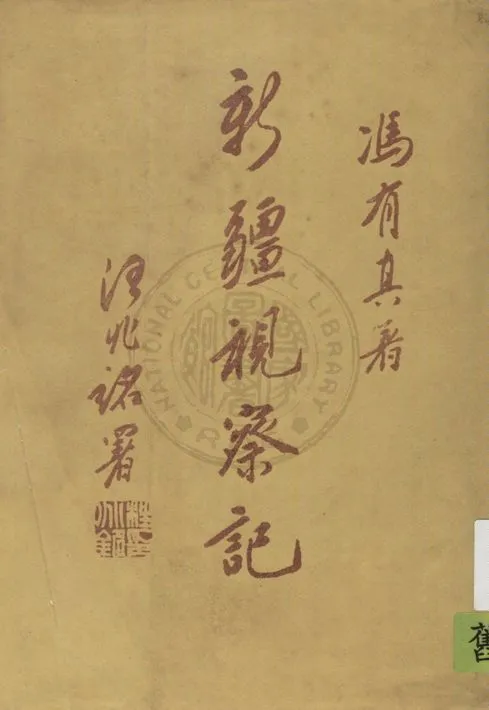 馮有真著
新疆視察記
汪兆銘署
NATIONAL CENTRAL LIBRARY
舊